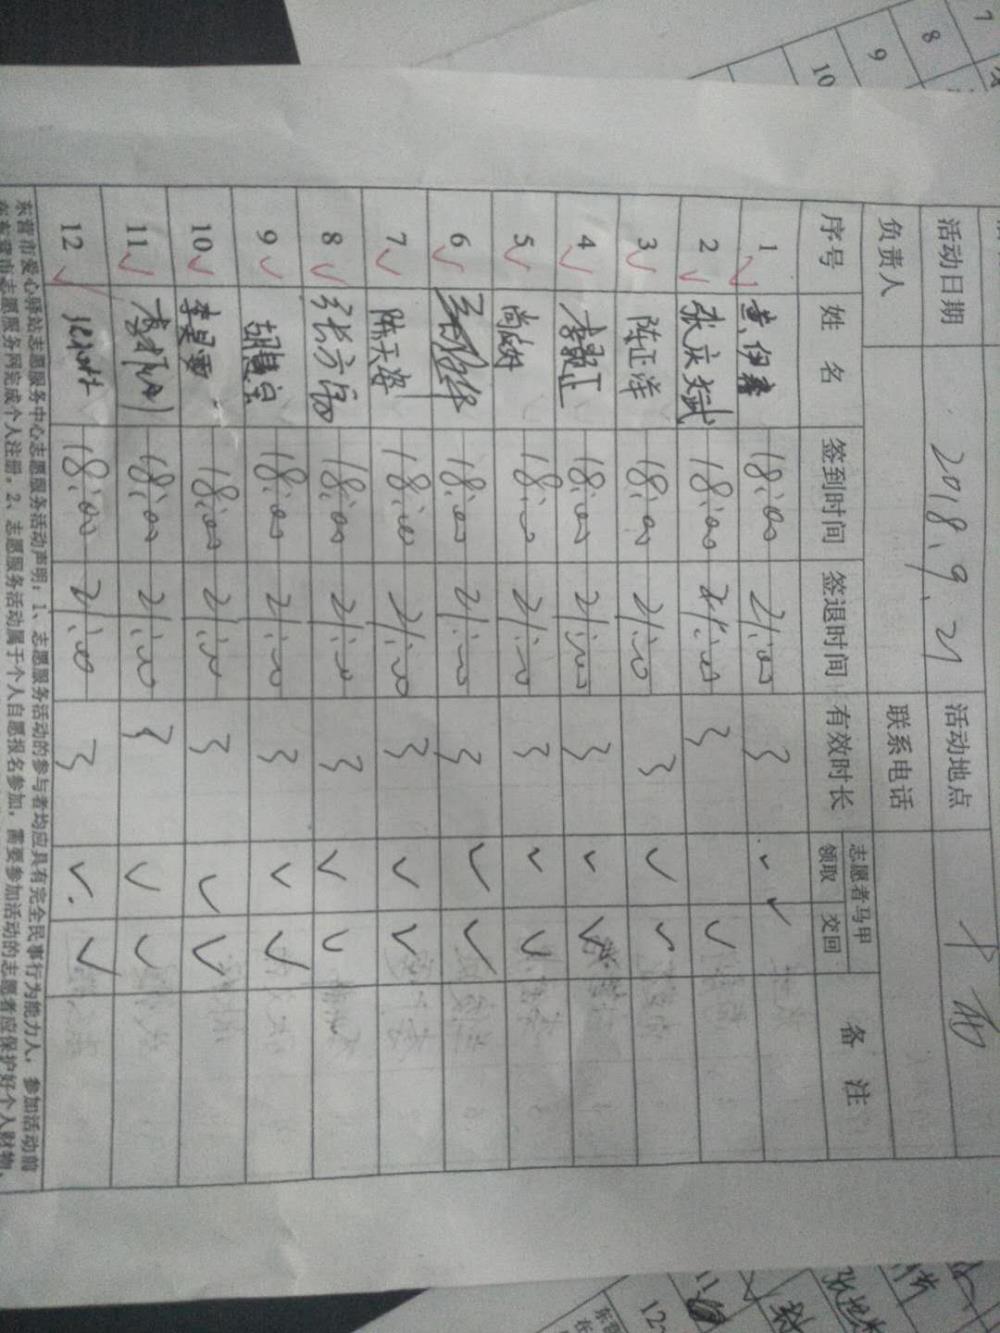 活动日期 2018.9.21 活动地点
负责人 联系电话
序号 姓 名 签到时间 签退时间 有效时长 志愿者马甲 备 注
领取 交回
1 黄伊 18:00 21:00 3 ✓ ✓
2 张庆斌 18:00 21:00 3 ✓
3 陈正洋 18:00 21:00 3 ✓ ✓
4 18:00 21:00 3 ✓ ✓
5 尚 18:00 21:00 3 ✓ ✓
6 18:00 21:00 3 ✓ ✓
7 陈天 18:00 21:00 3 ✓ ✓
8 张方 18:00 21:00 3 ✓ ✓
9 胡慧 18:00 21:00 3 ✓ ✓
10 李昊 18:00 21:00 3 ✓ ✓
11 18:00 21:00 3 ✓ ✓
12 18:00 21:00 3 ✓ ✓
东营市爱心驿站志愿服务中心志愿服务活动声明：1、志愿服务活动的参与者均应具有完全民事行为能力人，参加活动前
在东营市志愿服务网完成个人注册。2、志愿服务活动属于个人自愿报名参加，需要参加活动的志愿者应保护好个人财物，
7
8
9
10
12